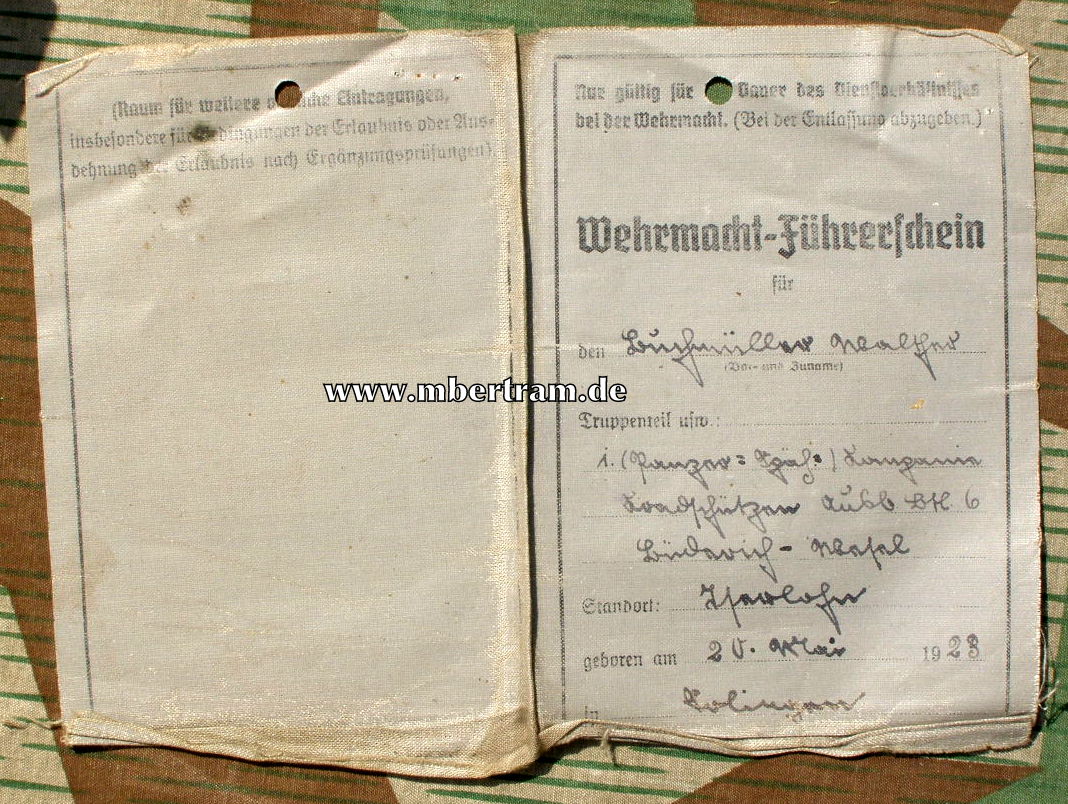 (Raum für weitere amtliche Eintragungen,
insbesondere für Bedingungen der Erlaubnis oder Aus-
dehnung der Erlaubnis nach Ergänzungsprüfungen)
Nur gültig für Dauer des Dienstverhältnisses
bei der Wehrmacht. (Bei der Entlassung abzugeben.)
Wehrmacht-Führerschein
für
den Buchmüller Walther
(Vor- und Zuname)
www.mbertram.de
Truppenteil usw.:
1. (Panzer=Späh.) Kompanie
Kradschützen Ausb Btl 6
Büderich - Wesel
Standort: Iserlohn
geboren am 20. Mai 1923
in Solingen